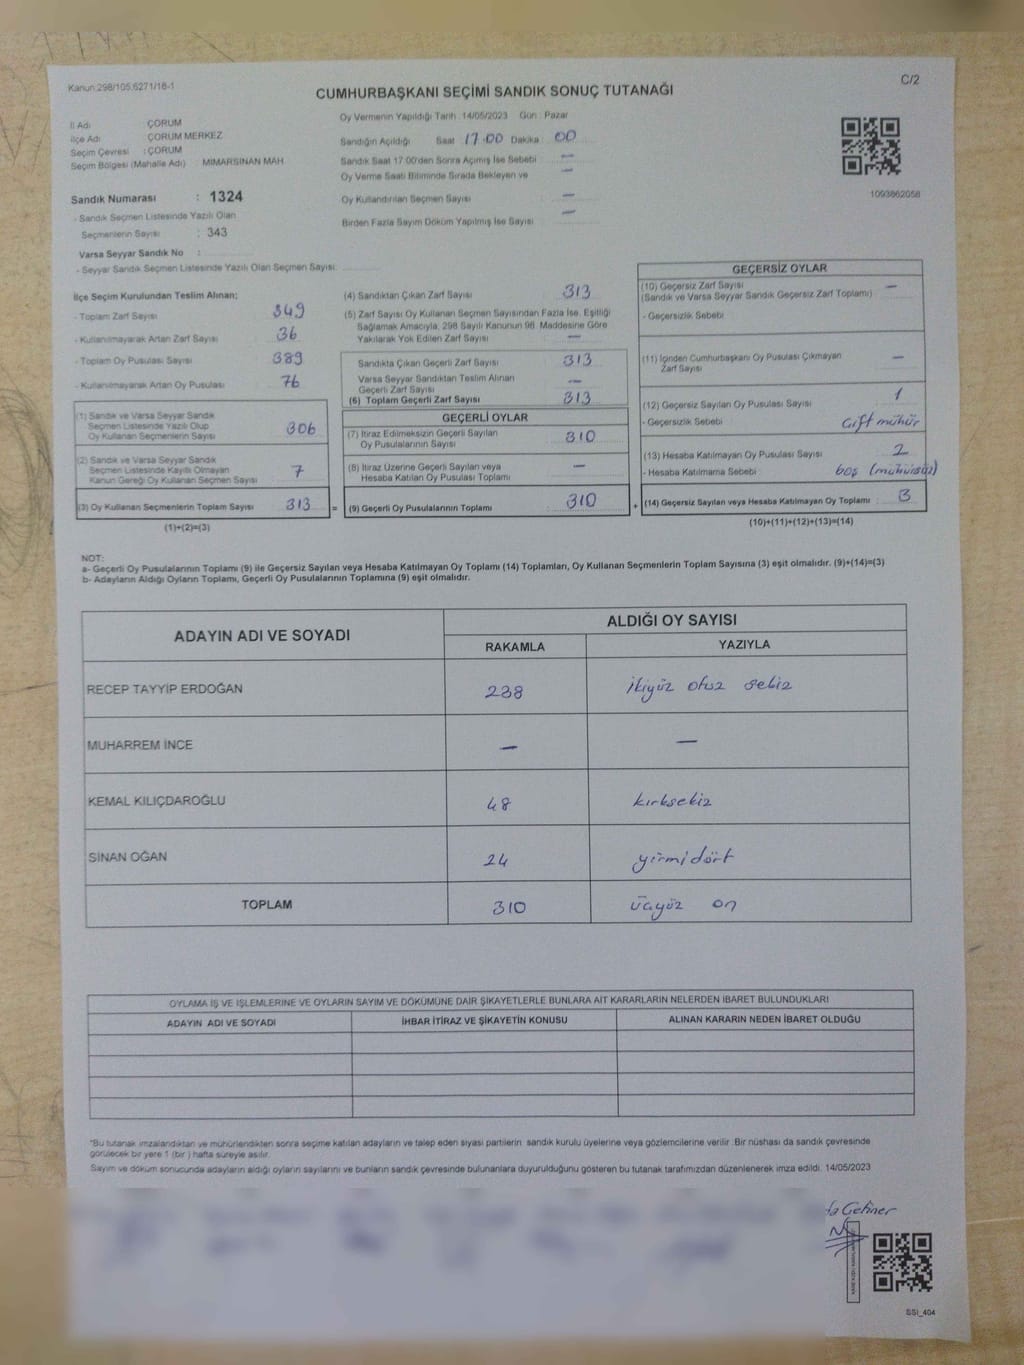 Kanun:298/105.6271/18-1
C/2
CUMHURBAŞKANI SEÇİMİ SANDIK SONUÇ TUTANAĞI
İl Adı : ÇORUM
İlçe Adı : ÇORUM MERKEZ
Seçim Çevresi : ÇORUM
Seçim Bölgesi (Mahalle Adı) : MİMARSİNAN MAH
Sandık Numarası : 1324
- Sandık Seçmen Listesinde Yazılı Olan
Seçmenlerin Sayısı : 343
Varsa Seyyar Sandık No :
- Seyyar Sandık Seçmen Listesinde Yazılı Olan Seçmen Sayısı:
Oy Vermenin Yapıldığı Tarih : 14/05/2023 Gün : Pazar
Sandığın Açıldığı Saat 17:00 Dakika : 00
Sandık Saat 17:00'den Sonra Açılmış İse Sebebi —
Oy Verme Saati Bitiminde Sırada Bekleyen ve —
Oy Kullandırılan Seçmen Sayısı —
Birden Fazla Sayım Döküm Yapılmış İse Sayısı —
1093862058
İlçe Seçim Kurulundan Teslim Alınan;
- Toplam Zarf Sayısı 349
- Kullanılmayarak Artan Zarf Sayısı 36
- Toplam Oy Pusulası Sayısı 389
- Kullanılmayarak Artan Oy Pusulası 76
(1) Sandık ve Varsa Seyyar Sandık
Seçmen Listesinde Yazılı Olup
Oy Kullanan Seçmenlerin Sayısı 306
(2) Sandık ve Varsa Seyyar Sandık
Seçmen Listesinde Kayıtlı Olmayan
Kanun Gereği Oy Kullanan Seçmen Sayısı 7
(3) Oy Kullanan Seçmenlerin Toplam Sayısı 313
(1)+(2)=(3)
(4) Sandıktan Çıkan Zarf Sayısı 313
(5) Zarf Sayısı Oy Kullanan Seçmen Sayısından Fazla İse, Eşitliği
Sağlamak Amacıyla, 298 Sayılı Kanunun 98. Maddesine Göre
Yakılarak Yok Edilen Zarf Sayısı —
Sandıkta Çıkan Geçerli Zarf Sayısı 313
Varsa Seyyar Sandıktan Teslim Alınan
Geçerli Zarf Sayısı —
(6) Toplam Geçerli Zarf Sayısı 313
GEÇERLİ OYLAR
(7) İtiraz Edilmeksizin Geçerli Sayılan
Oy Pusulalarının Sayısı 310
(8) İtiraz Üzerine Geçerli Sayılan veya
Hesaba Katılan Oy Pusulası Toplamı —
= (9) Geçerli Oy Pusulalarının Toplamı 310
GEÇERSİZ OYLAR
(10) Geçersiz Zarf Sayısı —
(Sandık ve Varsa Seyyar Sandık Geçersiz Zarf Toplamı)
- Geçersizlik Sebebi
(11) İçinden Cumhurbaşkanı Oy Pusulası Çıkmayan
Zarf Sayısı —
(12) Geçersiz Sayılan Oy Pusulası Sayısı 1
- Geçersizlik Sebebi : Çift mühür
(13) Hesaba Katılmayan Oy Pusulası Sayısı 2
- Hesaba Katılmama Sebebi : boş (mühürsüz)
+ (14) Geçersiz Sayılan veya Hesaba Katılmayan Oy Toplamı : 3
(10)+(11)+(12)+(13)=(14)
NOT:
a- Geçerli Oy Pusulalarının Toplamı (9) ile Geçersiz Sayılan veya Hesaba Katılmayan Oy Toplamı (14) Toplamları, Oy Kullanan Seçmenlerin Toplam Sayısına (3) eşit olmalıdır. (9)+(14)=(3)
b- Adayların Aldığı Oyların Toplamı, Geçerli Oy Pusulalarının Toplamına (9) eşit olmalıdır.
ADAYIN ADI VE SOYADI ALDIĞI OY SAYISI
RAKAMLA YAZIYLA
RECEP TAYYİP ERDOĞAN 238 ikiyüz otuz sekiz
MUHARREM İNCE — —
KEMAL KILIÇDAROĞLU 48 kırksekiz
SİNAN OĞAN 24 yirmidört
TOPLAM 310 üçyüz on
OYLAMA İŞ VE İŞLEMLERİNE VE OYLARIN SAYIM VE DÖKÜMÜNE DAİR ŞİKAYETLERLE BUNLARA AİT KARARLARIN NELERDEN İBARET BULUNDUKLARI
ADAYIN ADI VE SOYADI İHBAR İTİRAZ VE ŞİKAYETİN KONUSU ALINAN KARARIN NEDEN İBARET OLDUĞU
"Bu tutanak imzalandıktan ve mühürlendikten sonra seçime katılan adayların ve talep eden siyasi partilerin sandık kurulu üyelerine veya gözlemcilerine verilir. Bir nüshası da sandık çevresinde
görülecek bir yere 1 (bir) hafta süreyle asılır.
Sayım ve döküm sonucunda adayların aldığı oyların sayılarını ve bunların sandık çevresinde bulunanlara duyurulduğunu gösteren bu tutanak tarafımızdan düzenlenerek imza edildi. 14/05/2023
SSI_404